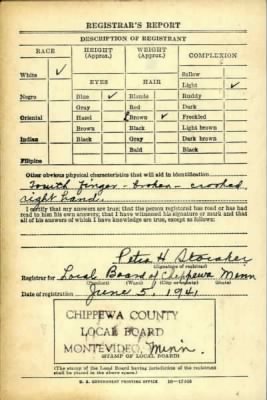 REGISTRAR'S REPORT
DESCRIPTION OF REGISTRANT
RACE HEIGHT (Approx.) WEIGHT (Approx.) COMPLEXION
White ✓ Sallow
EYES HAIR Light ✓
Negro Blue ✓ Blonde Ruddy
Gray Red Dark
Oriental Hazel Brown ✓ Freckled
Brown Black Light brown
Indian Black Gray Dark brown
Bald Black
Filipino
Other obvious physical characteristics that will aid in identification
Fourth finger - broken - crooked
right hand.
I certify that my answers are true; that the person registered has read or has had
read to him his own answers; that I have witnessed his signature or mark and that
all of his answers of which I have knowledge are true, except as follows:
Peter H
(Signature of registrar)
Registrar for Local Board of Chippewa Minn
(Precinct) (Ward) (City or county) (State)
Date of registration June 5, 1941
CHIPPEWA COUNTY
LOCAL BOARD
MONTEVIDEO, Minn.
(STAMP OF LOCAL BOARD)
(The stamp of the Local Board having jurisdiction of the registrant
shall be placed in the above space.)
U. S. GOVERNMENT PRINTING OFFICE